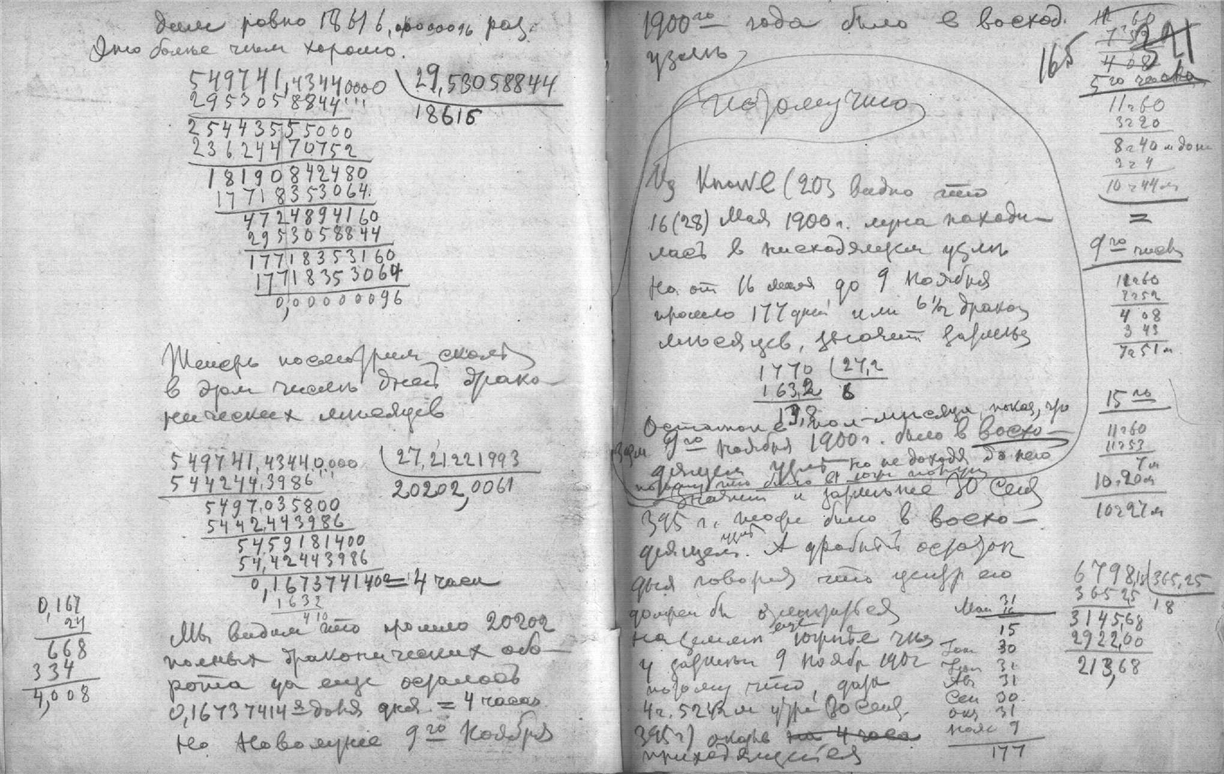 дали ровно 18616,0000016 раз.
Это более чем хорошо.
549741,43440000 29,53058844
2953058844 18616
25443555000
23624470752
18190842480
17718353064
4724894160
2953058844
17718353160
17718353064
0,000000096
Теперь посмотрим сколько
в этом числе дней драко-
нических месяцев
549741,43440,000 27,21221993
544244,3986 20202,0061
5497,035800
5442,443986
54,59181400
54,42443986
0,1673741402 = 4 часа
1632
410
0,167
24
668
334
4,008
Мы видим что прошло 20202
полных драконических обо-
рота да еще осталось
0,16737414 доля дня = 4 часа
Но Новолуние 9го Ноября
1900го года было в восход.
узле
потому что
Из Knowl (203 видно что
16(28) Мая 1900 г. луна находи-
лась в нисходящем узле
Но от 16 мая до 9 Ноября
прошло 177 дней или 6½ дракон.
месяцев, значит затмение
1770 27,2
163,2 6
13,8
Остаток пол-месяца, показ, что
9го Ноября 1900 г. было в восхо-
дящем узле но не доходя до него
значит и затмение 30 Сент
395 г. тоже было в восхо-
дящем узле. А дробный остаток
дня говорит что центр его
должен бы
на земле еще южнее чем
у затмения 9 Ноября 190
потому что, дата
395 г.) около на 4 часа
приходящегося
Мая 31
16
15
Июн 30
Июл 31
Ав 31
Сен 30
окт 31
нояб 9
177
165 321
11 60
7 52
4 08
5го часа
11 ч 60
3 ч 20
8 ч 40 м
2 ч 4
10 ч 44 м
=
9го часа
11 ч 60
7 ч 52
4 08
3 43
7 ч 51 м
15го
11 ч 60
11 ч 53
7 м
10.20 м
10 ч 27 м
6798,18 365,25
36525 18
314568
292200
213,68